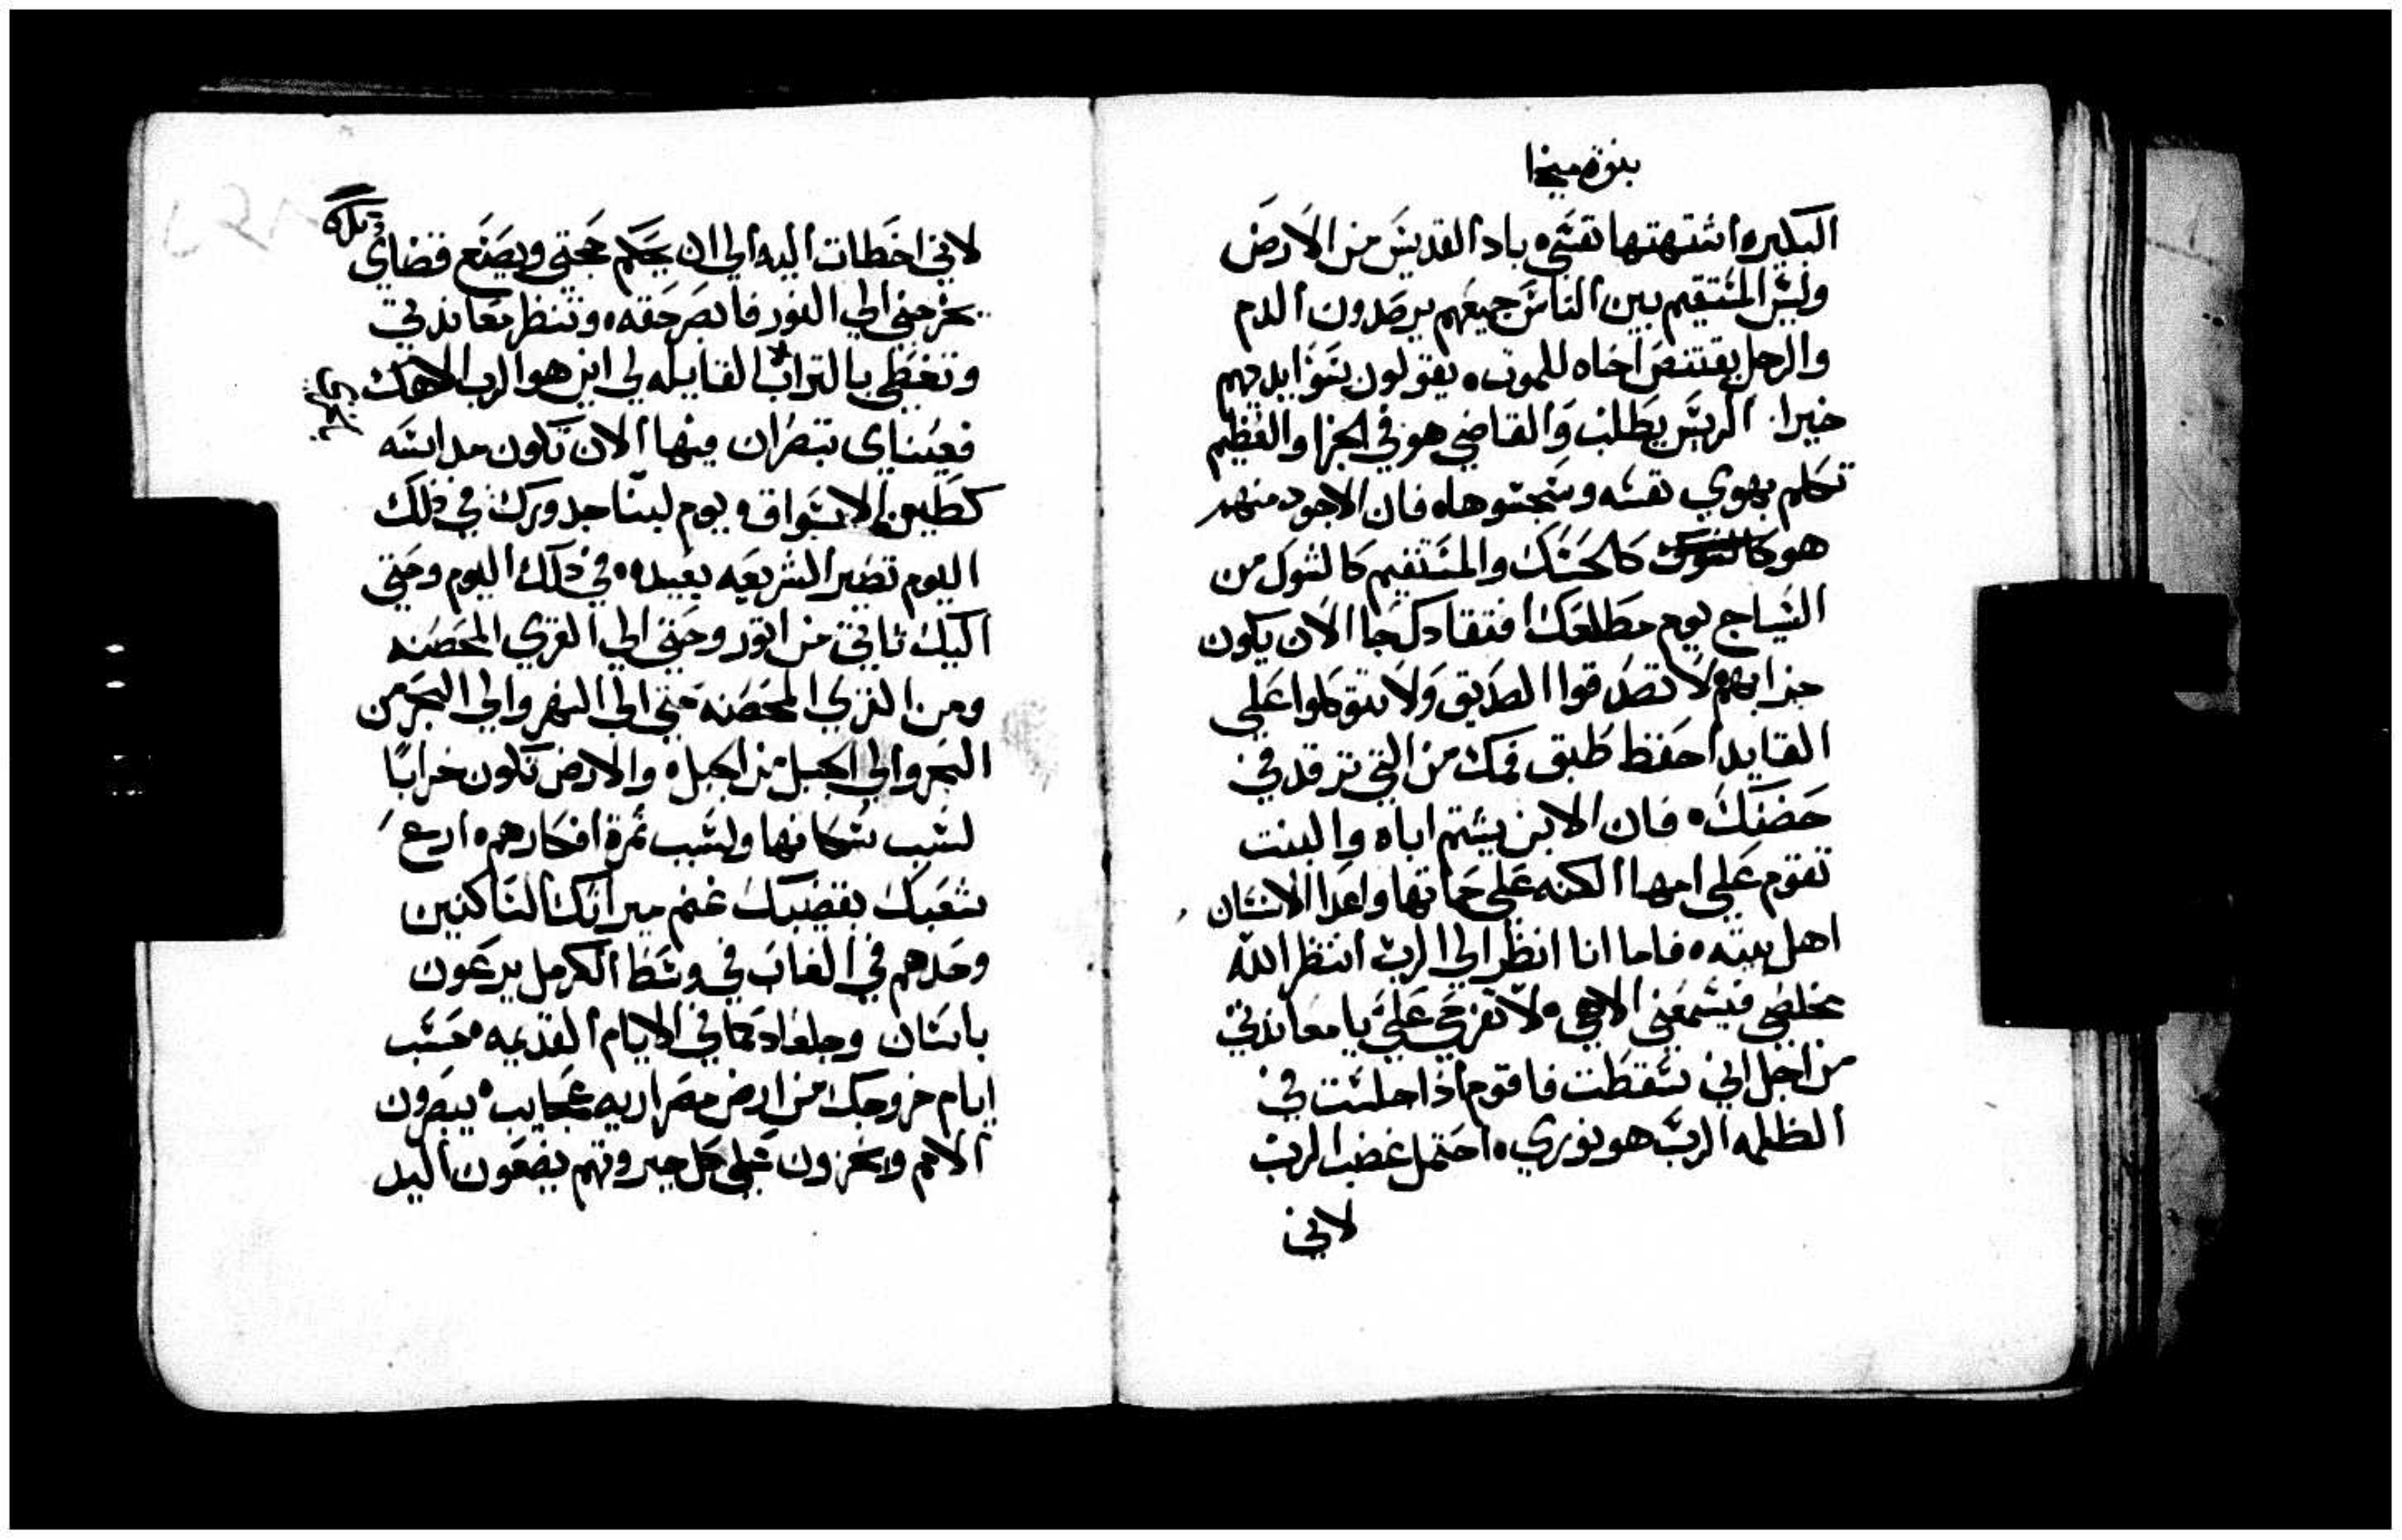 نبوة ميخا
البكيره اشتهتها نفسي باد القديس من الارض
وليس المستقيم بين الناس جميعهم يرصدون الدم
والرجل يقتنص اخاه للموت يقولون بسو ايديهم
خيرا الريس يطلب والقاضي هو في الجزا والعظيم
تكلم بهوي نفسه وسجسوها فان الاجود منهم
هو كالشوك كالحسك والمستقيم كالشوك من
السياج يوم مطلعك افتقادك جا الان يكون
خرابهم لا تصدقوا الصديق ولا تتوكلوا علي
القايد احفظ طبق فمك من التي ترقد في
حضنك فان الابن يشتم اباه والبنت
تقوم علي امها الكنه علي حماتها واعدا الانسان
اهل بيته فاما انا انظر الي الرب انتظر الله
مخلصي فيسمعني الاهي لا تفرحي علي يا معاندتي
من اجل اني سقطت فاقوم اذا جلست في
الظلمه الرب هو نوري احتمل غضب الرب
لاني
لاني اخطات اليه الي ان يحكم حجتي ويصنع قضاي
يخرجني الي النور فابصر حقه وتنظر معاندتي
وتغطي بالتراب القايله لي اين هو الرب الاهك
فعيناي تبصران فيها الان تكون مداسه
كطين الاسواق يوم لبنا جدورك في ذلك
اليوم تصير الشريعه بعيده في ذلك اليوم وحتي
اليك تاتي من اتور وحتي الي القري المحصنه
ومن القري المحصنه حتي الي النهر والي البحر من
البحر والي الجبل من الجبل والارض تكون خرابا
لسبب سكانها ولسبب ثمرة افكارهم ارع
شعبك بقضيبك غنم ميراتك الساكنين
وحدهم في الغاب في وسط الكرمل يرعون
باسان وجلعاد كما في الايام القديمه حسب
ايام خروجك من ارض مصر اريه عجايب يبصرون
الامم ويخزون علي كل جبروتهم يضعون اليد